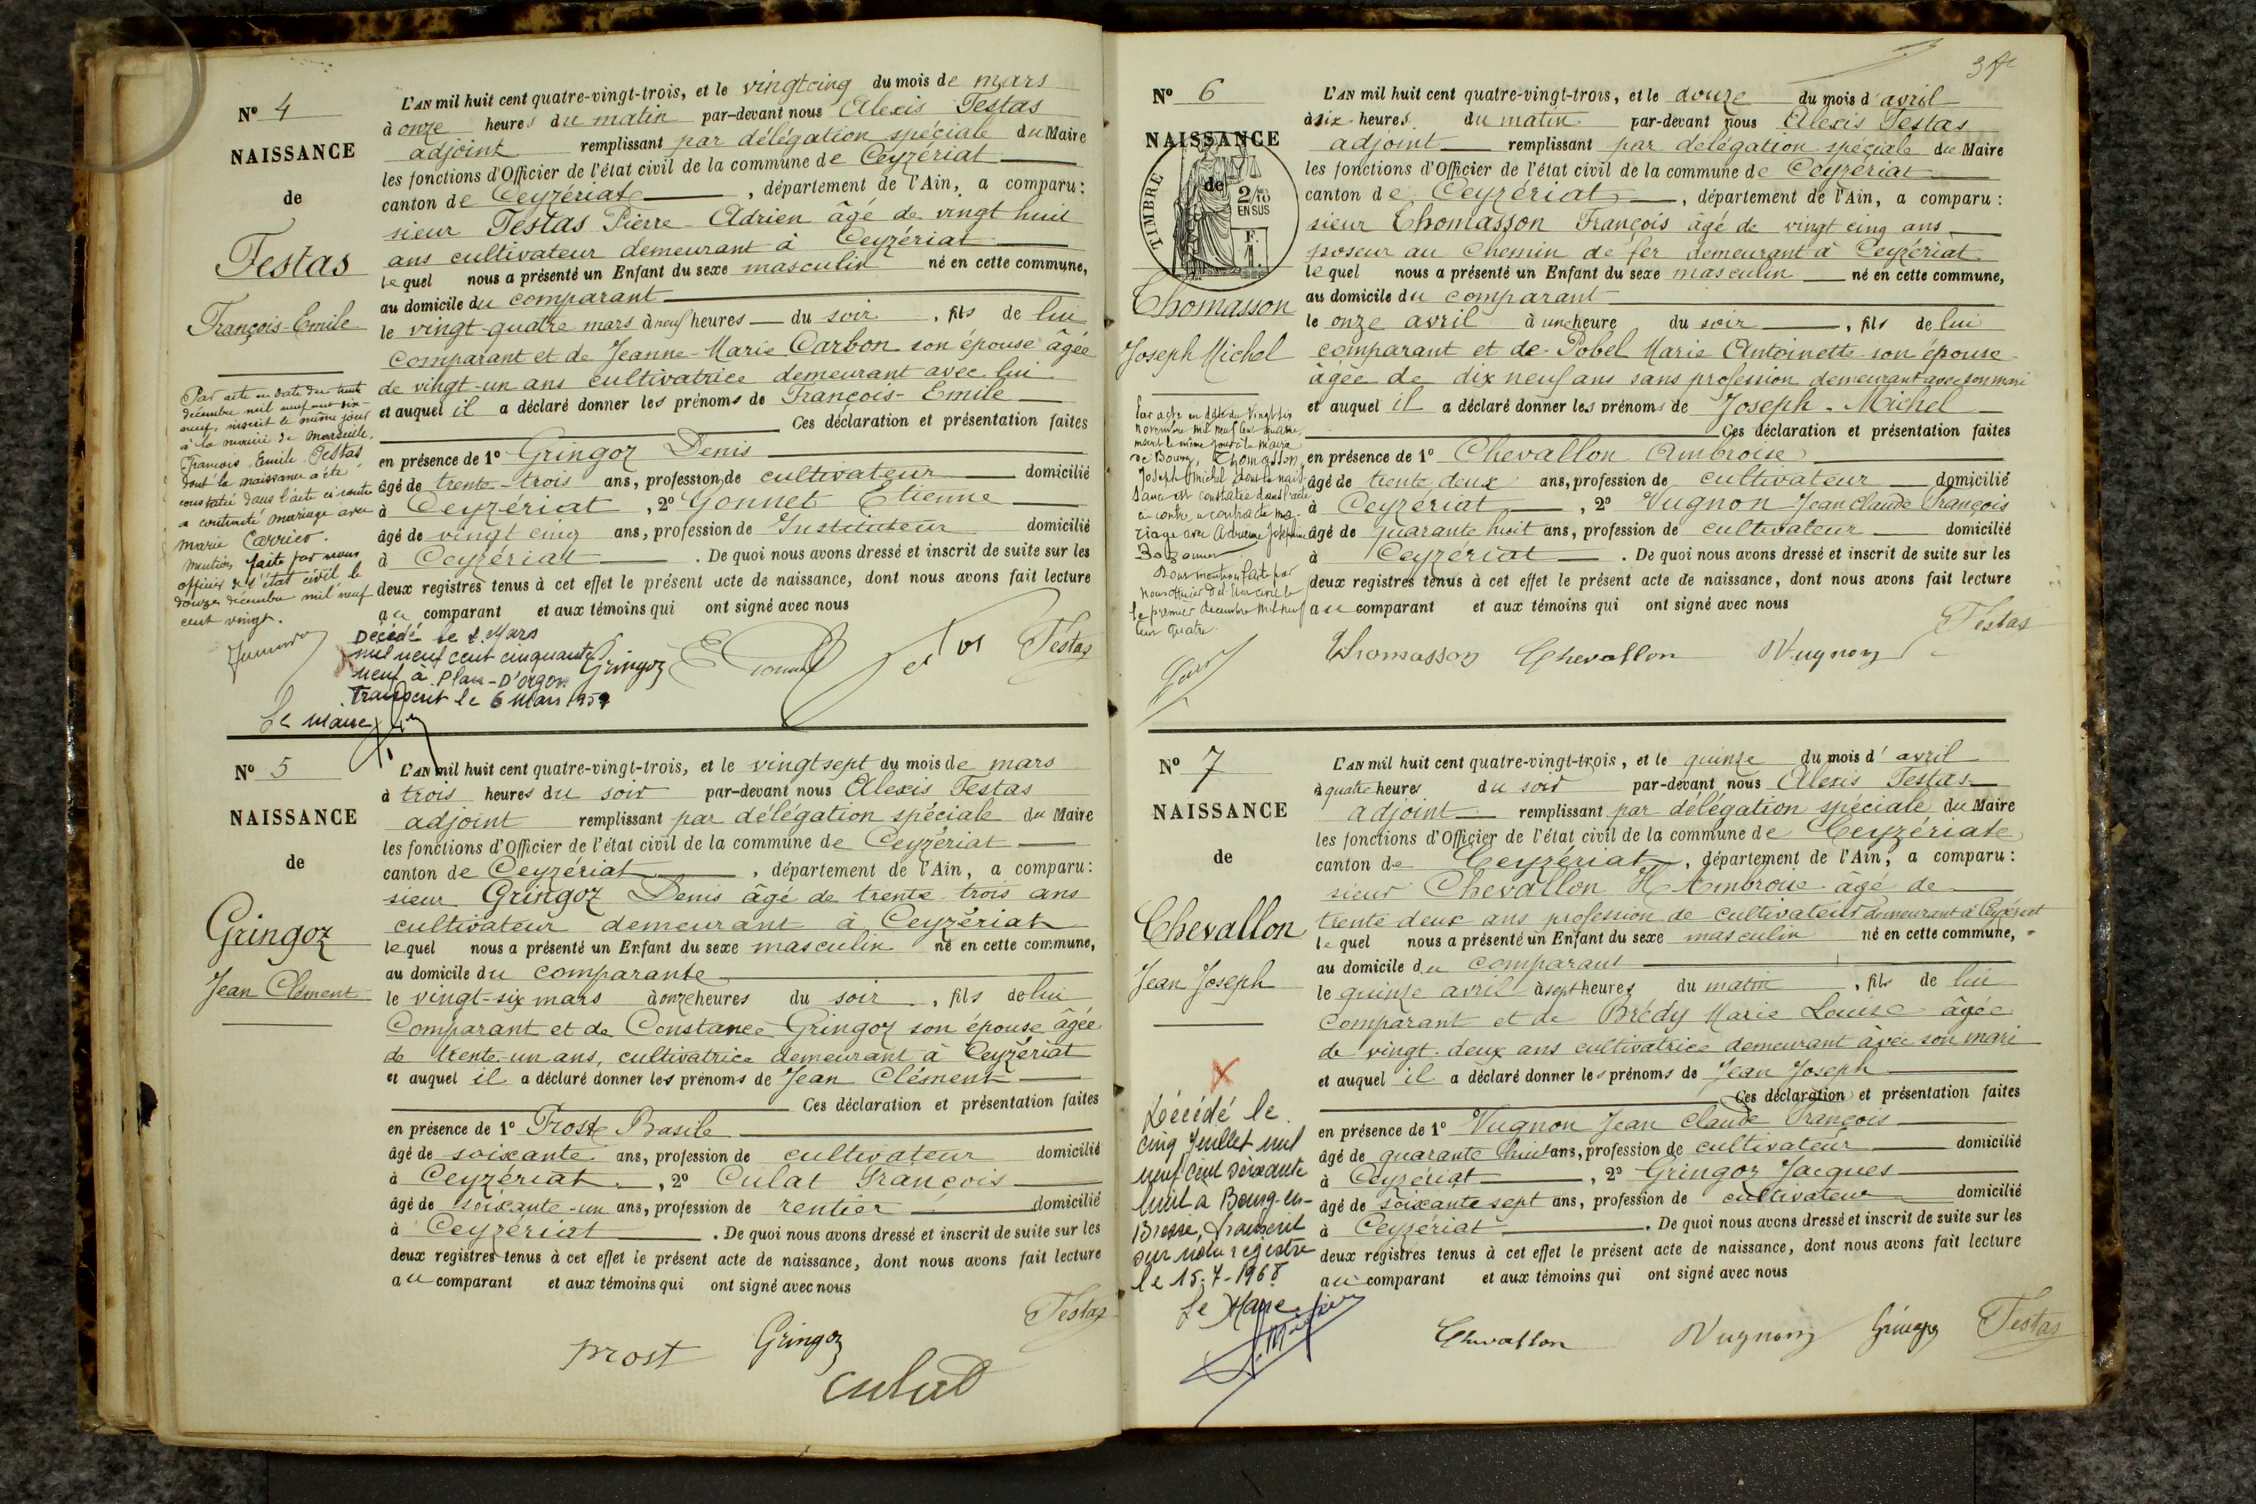 N° 4
NAISSANCE
de
Testas
François-Emile
Par acte en date du trente
décembre mil neuf cent dix-
neuf, inscrit le même jour
à la mairie de Marseille,
François Emile Testas
dont la naissance a été
constatée dans l'acte ci-contre
a contracté mariage avec
Marie Carrier.
Mention faite par nous
officier de l'état civil le
douze décembre mil neuf
cent vingt.
L'AN mil huit cent quatre-vingt-trois, et le vingt cinq du mois de mars
à onze heures du matin par-devant nous Alexis Testas
adjoint remplissant par délégation spéciale du Maire
les fonctions d'Officier de l'état civil de la commune de Ceyzériat
canton de Ceyzériat, département de l'Ain, a comparu:
sieur Testas Pierre-Adrien âgé de vingt huit
ans cultivateur demeurant à Ceyzériat
lequel nous a présenté un Enfant du sexe masculin né en cette commune,
au domicile du comparant
le vingt-quatre mars à neuf heures du soir, fils de lui
comparant et de Jeanne-Marie Carbon son épouse âgée
de vingt-un ans cultivatrice demeurant avec lui
et auquel il a déclaré donner les prénoms de François-Emile
Ces déclaration et présentation faites
en présence de 1° Gringoz Denis
âgé de trente-trois ans, profession de cultivateur domicilié
à Ceyzériat, 2° Gonnet Etienne
âgé de vingt cinq ans, profession de Instituteur domicilié
à Ceyzériat. De quoi nous avons dressé et inscrit de suite sur les
deux registres tenus à cet effet le présent acte de naissance, dont nous avons fait lecture
au comparant et aux témoins qui ont signé avec nous
Décédé le 2 Mars
mil neuf cent cinquante
neuf à Plan-D'orgon
Transcrit le 6 Mars 1959
Le maire
Gringoz
Testas
N° 5
NAISSANCE
de
Gringoz
Jean Clément
L'AN mil huit cent quatre-vingt-trois, et le vingt sept du mois de mars
à trois heures du soir par-devant nous Alexis Testas
adjoint remplissant par délégation spéciale du Maire
les fonctions d'Officier de l'état civil de la commune de Ceyzériat
canton de Ceyzériat, département de l'Ain, a comparu:
sieur Gringoz Denis âgé de trente trois ans
cultivateur demeurant à Ceyzériat
lequel nous a présenté un Enfant du sexe masculin né en cette commune,
au domicile du comparante
le vingt-six mars à onze heures du soir, fils de lui
Comparant et de Constance Gringoz son épouse âgée
de trente-un ans, cultivatrice demeurant à Ceyzériat
et auquel il a déclaré donner les prénoms de Jean Clément
Ces déclaration et présentation faites
en présence de 1° Prost Basile
âgé de soixante ans, profession de cultivateur domicilié
à Ceyzériat, 2° Culat François
âgé de soixante-un ans, profession de rentier domicilié
à Ceyzériat. De quoi nous avons dressé et inscrit de suite sur les
deux registres tenus à cet effet le présent acte de naissance, dont nous avons fait lecture
au comparant et aux témoins qui ont signé avec nous
Testas
prost Gringoz
culat
N° 6
NAISSANCE
de
TIMBRE
2/10
EN SUS
F.
1.
Thomasson
Joseph Michel
Par acte en date du vingt six
novembre mil neuf cent quatre
inscrit le même jour à la mairie
de Bourg, Thomasson
Joseph Michel dont la nais-
sance est constatée dans l'acte
ci contre a contracté ma-
riage avec Adrienne Joséphine
Dont mention faite par
nous officier de l'état civil le
le premier décembre mil neuf
cent quatre.
L'AN mil huit cent quatre-vingt-trois, et le douze du mois d'avril
à six heures du matin par-devant nous Alexis Testas
adjoint remplissant par délégation spéciale du Maire
les fonctions d'Officier de l'état civil de la commune de Ceyzériat
canton de Ceyzériat, département de l'Ain, a comparu:
sieur Thomasson François âgé de vingt cinq ans
poseur au Chemin de fer demeurant à Ceyzériat
lequel nous a présenté un Enfant du sexe masculin né en cette commune,
au domicile du comparant
le onze avril à une heure du soir, fils de lui
comparant et de Pobel Marie Antoinette son épouse
âgée de dix neuf ans sans profession demeurant avec son mari
et auquel il a déclaré donner les prénoms de Joseph-Michel
Ces déclaration et présentation faites
en présence de 1° Chevallon Ambroise
âgé de trente deux ans, profession de cultivateur domicilié
à Ceyzériat, 2° Vugnon Jean Claude François
âgé de quarante huit ans, profession de cultivateur domicilié
à Ceyzériat. De quoi nous avons dressé et inscrit de suite sur les
deux registres tenus à cet effet le présent acte de naissance, dont nous avons fait lecture
au comparant et aux témoins qui ont signé avec nous
Testas
Thomasson Chevallon Vugnon
N° 7
NAISSANCE
de
Chevallon
Jean Joseph
Décédé le
cinq Juillet mil
neuf cent soixante
huit à Bourg-en-
Bresse, Transcrit
sur notre registre
le 15-7-1968
Le Maire
L'AN mil huit cent quatre-vingt-trois, et le quinze du mois d'avril
à quatre heures du soir par-devant nous Alexis Testas
adjoint remplissant par délégation spéciale du Maire
les fonctions d'Officier de l'état civil de la commune de Ceyzériat
canton de Ceyzériat, département de l'Ain, a comparu:
sieur Chevallon Ambroise âgé de
trente deux ans profession de cultivateur demeurant à Ceyzériat
lequel nous a présenté un Enfant du sexe masculin né en cette commune,
au domicile du comparant
le quinze avril à sept heures du matin, fils de lui
comparant et de Brédy Marie Louise âgée
de vingt-deux ans cultivatrice demeurant avec son mari
et auquel il a déclaré donner les prénoms de Jean Joseph
Ces déclaration et présentation faites
en présence de 1° Vugnon Jean Claude François
âgé de quarante huit ans, profession de cultivateur domicilié
à Ceyzériat, 2° Gringoz Jacques
âgé de soixante sept ans, profession de cultivateur domicilié
à Ceyzériat. De quoi nous avons dressé et inscrit de suite sur les
deux registres tenus à cet effet le présent acte de naissance, dont nous avons fait lecture
au comparant et aux témoins qui ont signé avec nous
Chevallon Vugnon Gringoz Testas